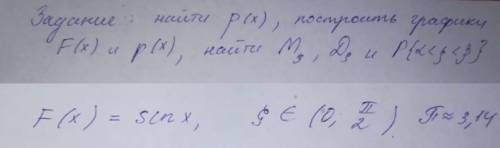 Задание: найти p(x), построить графики
F(x) и p(x), найти Mξ, Dξ и P{α<ξ<β}
F(x) = sin x, ξ ∈ (0; π/2) π≈3,14